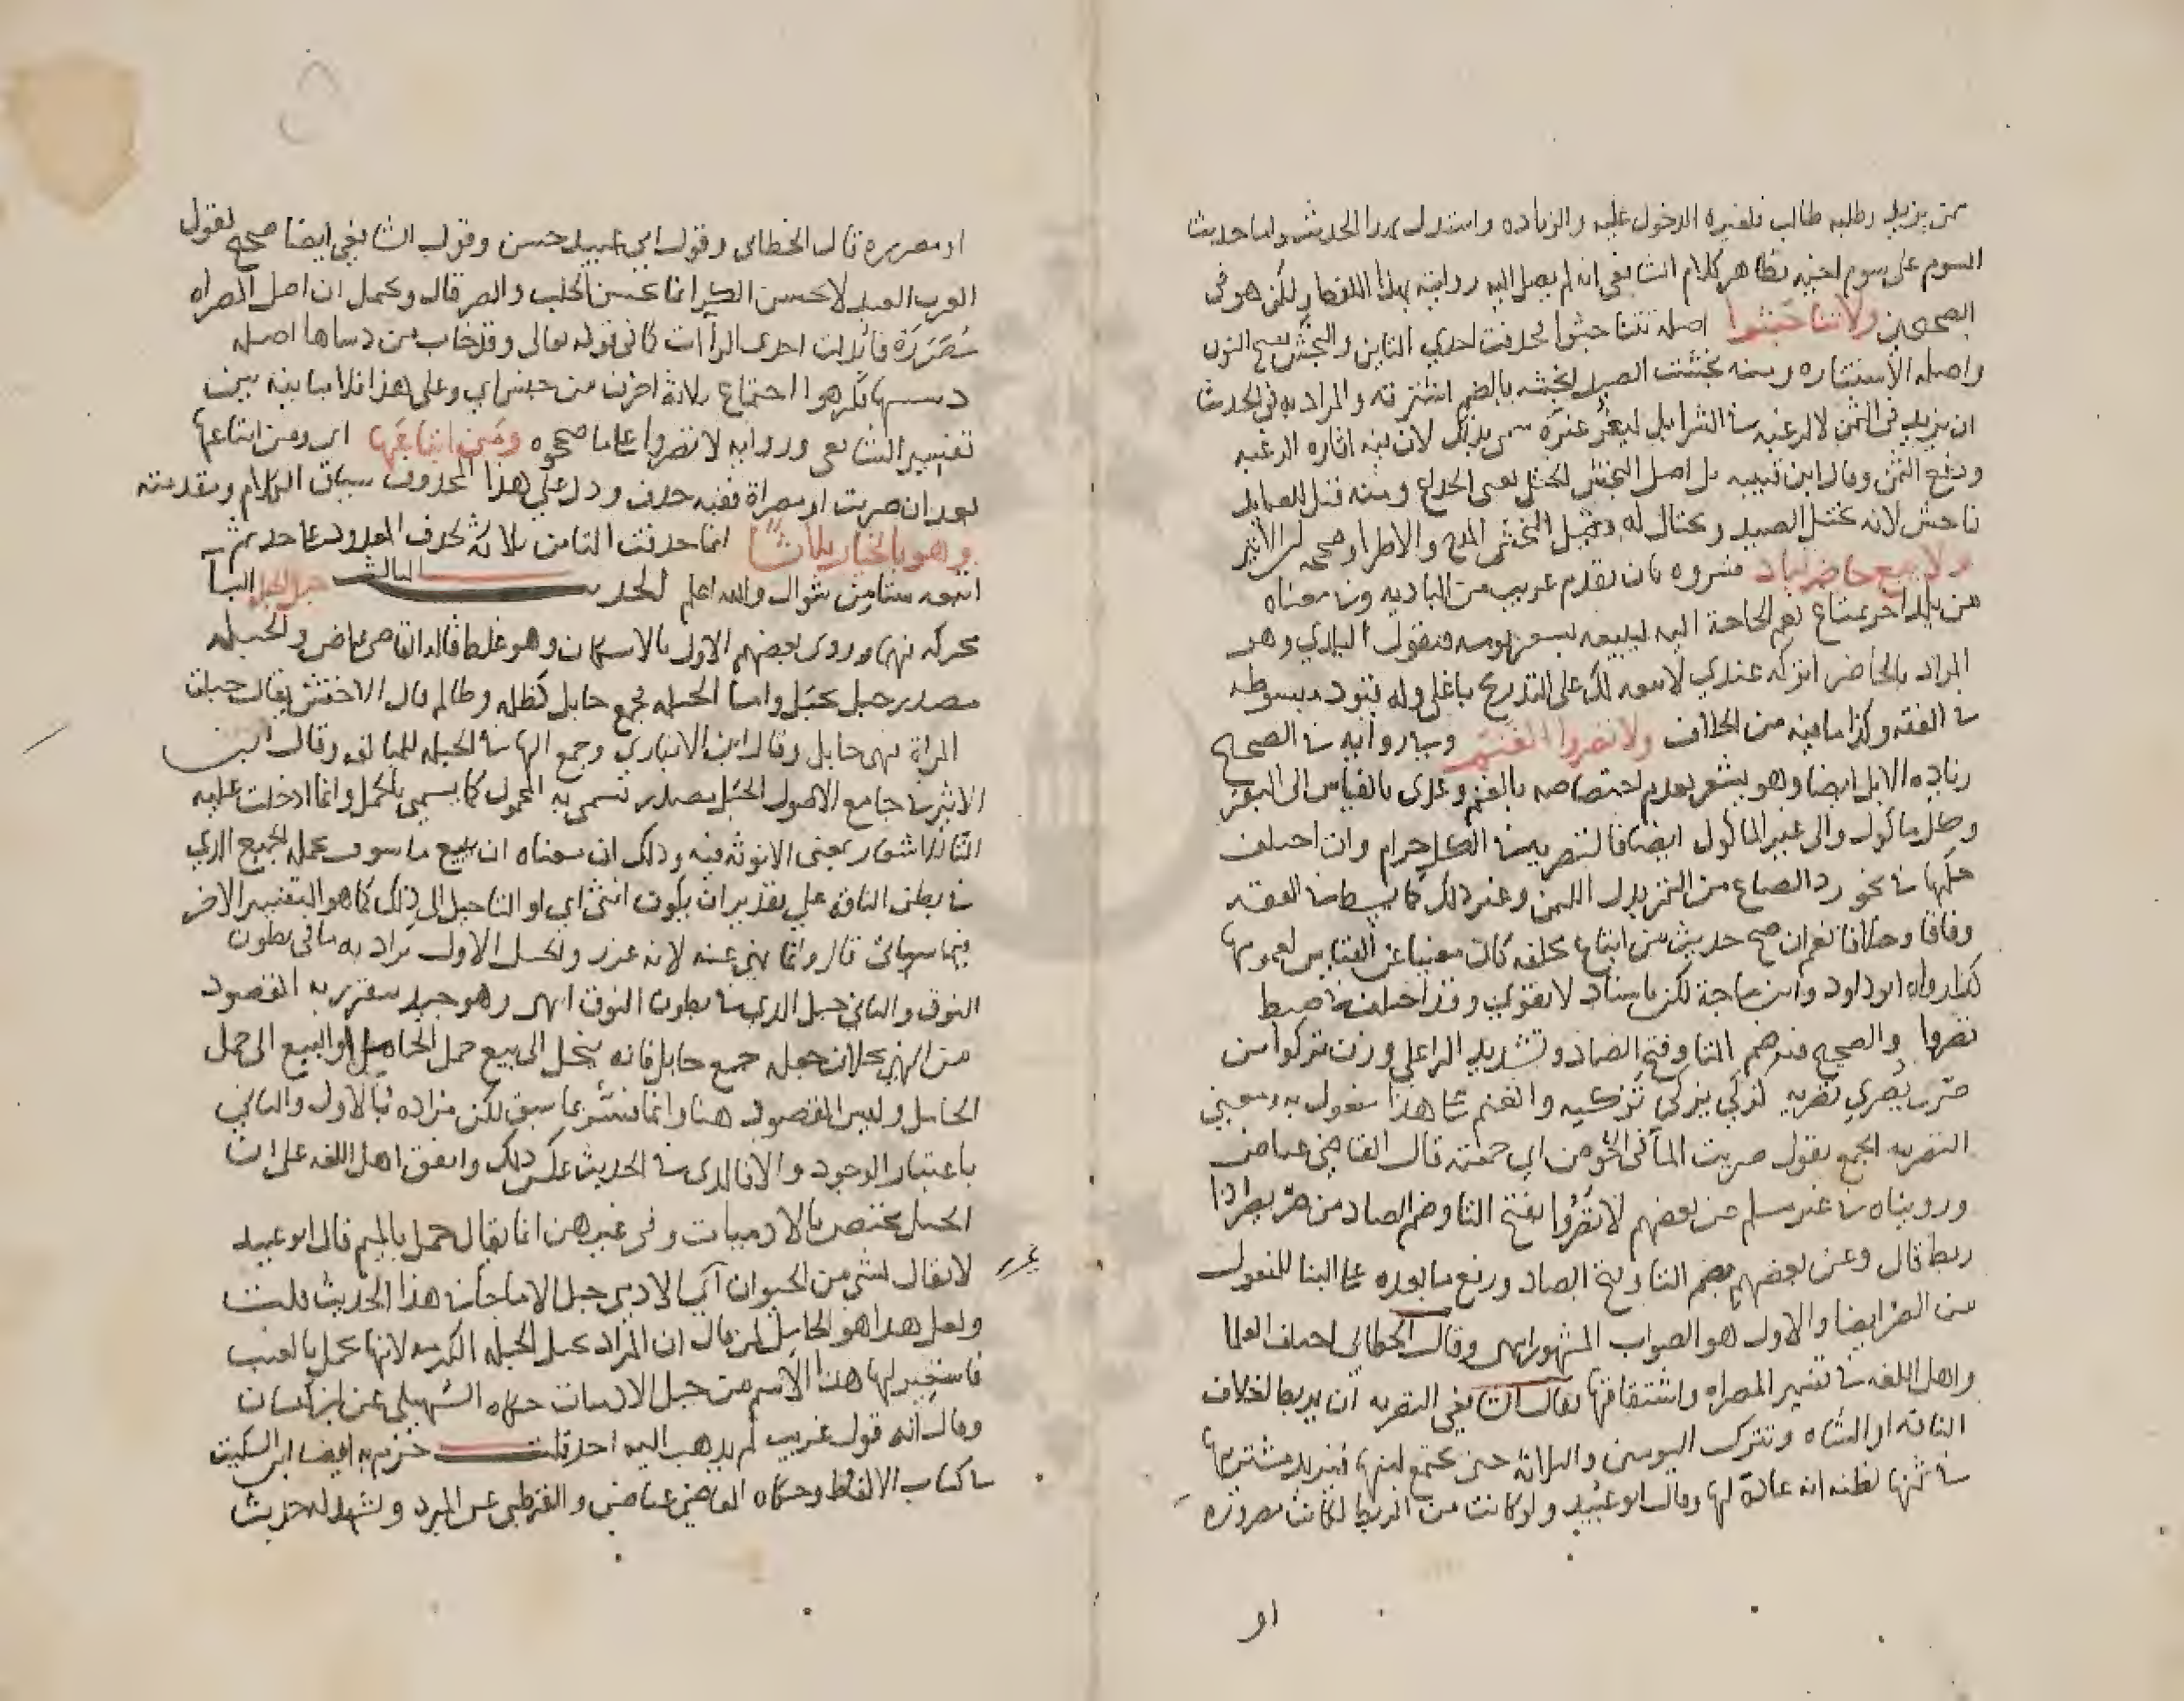 من يزيد وطلبه طالب فلغيره الدخول عليه والزياده واستدل بهذا الحديث واما حديث
السوم على سوم اخيه فظاهر كلام الشافعي انه لم يصل اليه روايته بهذا اللفظ ولكن هو في
الصحيحين ولا تناجشوا اصله تتناجشوا فحذفت احدي التاين والنجش بفتح النون
واصله الاستثاره ومنه نجشت الصيد انجشه بالضم استثرته والمراد به في الحديث
ان يزيد في الثمن لا لرغبه في الشرا بل ليغر غيره سمي بذلك لان فيه اثاره الرغبه
ورفع الثمن وقال ابن قتيبه بل اصل النجش الختل يعني الخداع ومنه قيل للصايد
ناجش لانه يختل الصيد ويحتال له وقيل النجش المدح والاطرا وصححه ابن الاثير
ولا يبيع حاضر لباد فسروه بان يقدم غريب من الباديه وفي معناه
من بلد اخر بمتاع تعم الحاجة اليه ليبيعه بسعر يومه فيقول البلدي وهو
المراد بالحاضر اتركه عندي لابيعه لك على التدريج باغلى وله قيود مبسوطه
في الفقه وكذا ما فيه من الخلاف ولا تصروا الغنم وجا روايه في الصحيح
زياده الابل ايضا وهو يشعر بعدم اختصاصه بالغنم وعدى بالقياس الى البقر
وكل ماكول والى غير الماكول ايضا فالتصريه في الكل حرام وان اختلف
حكمها في نحو رد الصاع من التمر بدل اللبن وغير ذلك كما بسط في الفقه
وفاقا وخلافا نعم ان صح حديث من ابتاع محفله كان مغنيا عن القياس لعمومها
كذا رواه ابو داود وابن ماجة لكن باسناد لا يقوي وقد اختلف في ضبط
تصروا والصحيح فيه ضم التا وفتح الصاد وتشديد الرا على وزن تزكوا من
صرى يصري تصريه كزكي يزكي تزكيه والغنم على هذا مفعول به ومعنى
التصريه الجمع يقول صريت الما في الحوض اي جمعته قال القاضي عياض
ورويناه في غير مسلم عن بعضهم لا تصروا بفتح التا وضم الصاد من صر يصر اذا
ربط قال وعن بعضهم بضم التا وفتح الصاد ورفع ما بعده على البنا للمفعول
من الصر ايضا والاول هو الصواب المشهور انتهى وقال الخطابي اختلف العلما
واهل اللغه في تفسير المصراه واشتقاقها فقال الشافعي التصريه ان يربط اخلاف
الناقه او الشاه وتترك اليومين والثلاثة حتى يجتمع لبنها فيزيد مشتريها
في ثمنها لظنه انه عادة لها وقال ابو عبيد ولو كانت من الربط لكانت مصروره
او
او مصرره قال الخطابي وقول ابي عبيد حسن وقول الشافعي ايضا صحيح لقول
العرب العبد لا يحسن الكر انما يحسن الحلب والصر قال ويحتمل ان اصل المصراه
مصررة فابدلت احدى الراات كما في قوله تعالى وقد خاب من دساها اصله
دسسها فكرهوا اجتماع ثلاثة احرف من جنس اي وعلى هذا فلا مباينه بين
تفسير الشافعي وروايه لا تصروا على ما صححوه ومن ابتاعها اي ومن ابتاعها
بعد ان صريت او مصراة ففيه حذف ودل على هذا المحذوف سياق الكلام ومقدمته
وهو بالخيار ثلاثا انما حذفت التا من ثلاثه لحذف المعدود على حد ثم
اتبعه ستا من شوال والله اعلم الحديث الثالث حبل الحبله البا
محركه فيهما وروى بعضهم الاول بالاسكان وهو غلط قاله القاضي عياض والحبله
مصدر حبل يحبل واما الحبله فجمع حابل كظلمه وظالم قال الاخفش يقال حبلت
المراة فهي حابل وقال ابن الانباري وجمع الها في الحبله للمبالغه وقال ابن
الاثير في جامع الاصول الحبل مصدر تسمى به المحمول كما يسمى بالحمل وانما ادخلت عليه
التا للاشعار بمعنى الانوثه فيه وذلك ان معناه ان يبيع ما سوف يحمله الجنين الذي
في بطن الناقه علي تقدير ان يكون انثى اي او التاجيل الى ذلك كما هو التفسير الاخر
فيما سياتي قال وانما نهي عنه لانه غرر والحبل الاول يراد به ما في بطون
النوق والثاني حبل الذي في بطون النوق انتهى وهو جيد يتقرر به المقصود
من النهي بخلاف جعله جمع حابل فانه ينحل الى بيع حمل الحامل او البيع الى حمل
الحامل وليس المقصود هنا وانما فسر بما سبق لكن مراده بالاول والثاني
باعتبار الوجود والا فالذي في الحديث عكس ذلك واتفق اهل اللغه على ان
الحبل مختص بالادميات وفي غيرهن انما يقال حمل بالميم قال ابو عبيد
لا يقال لشي من الحيوان اي الادمي حبل الا ما جا في هذا الحديث قلت
غير
ولعل هذا هو الحامل لمن قال ان المراد بحبل الحبله الكرمه لانها تحمل بالعنب
فاستعير لها هذا الاسم من حبل الادميات حكاه السهيلي عن ابن كيسان
وقال انه قول غريب لم يذهب اليه احد قلت جزم به ايضا ابن السكيت
في كتاب الالفاظ وحكاه القاضي عياض والقرطبي عن المبرد ويشهد له حديث